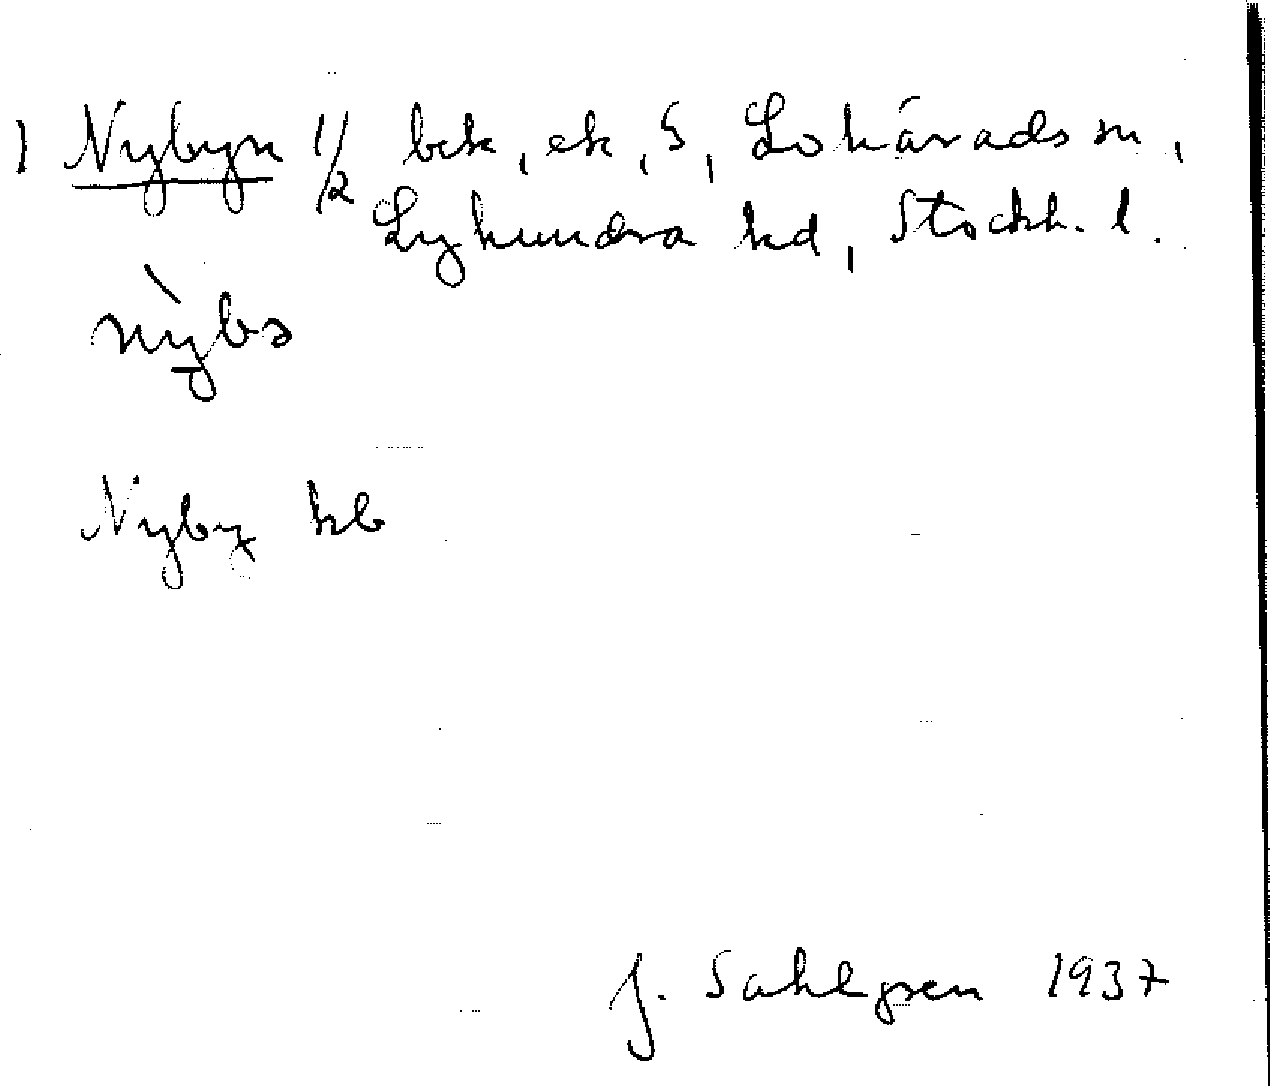 1 Nybyn 1/2 bck, ek, S, Lohärads sn,
Lyhundra hd, Stockh. l.
nỳbə
Nyby kb
J. Sahlgren 1937